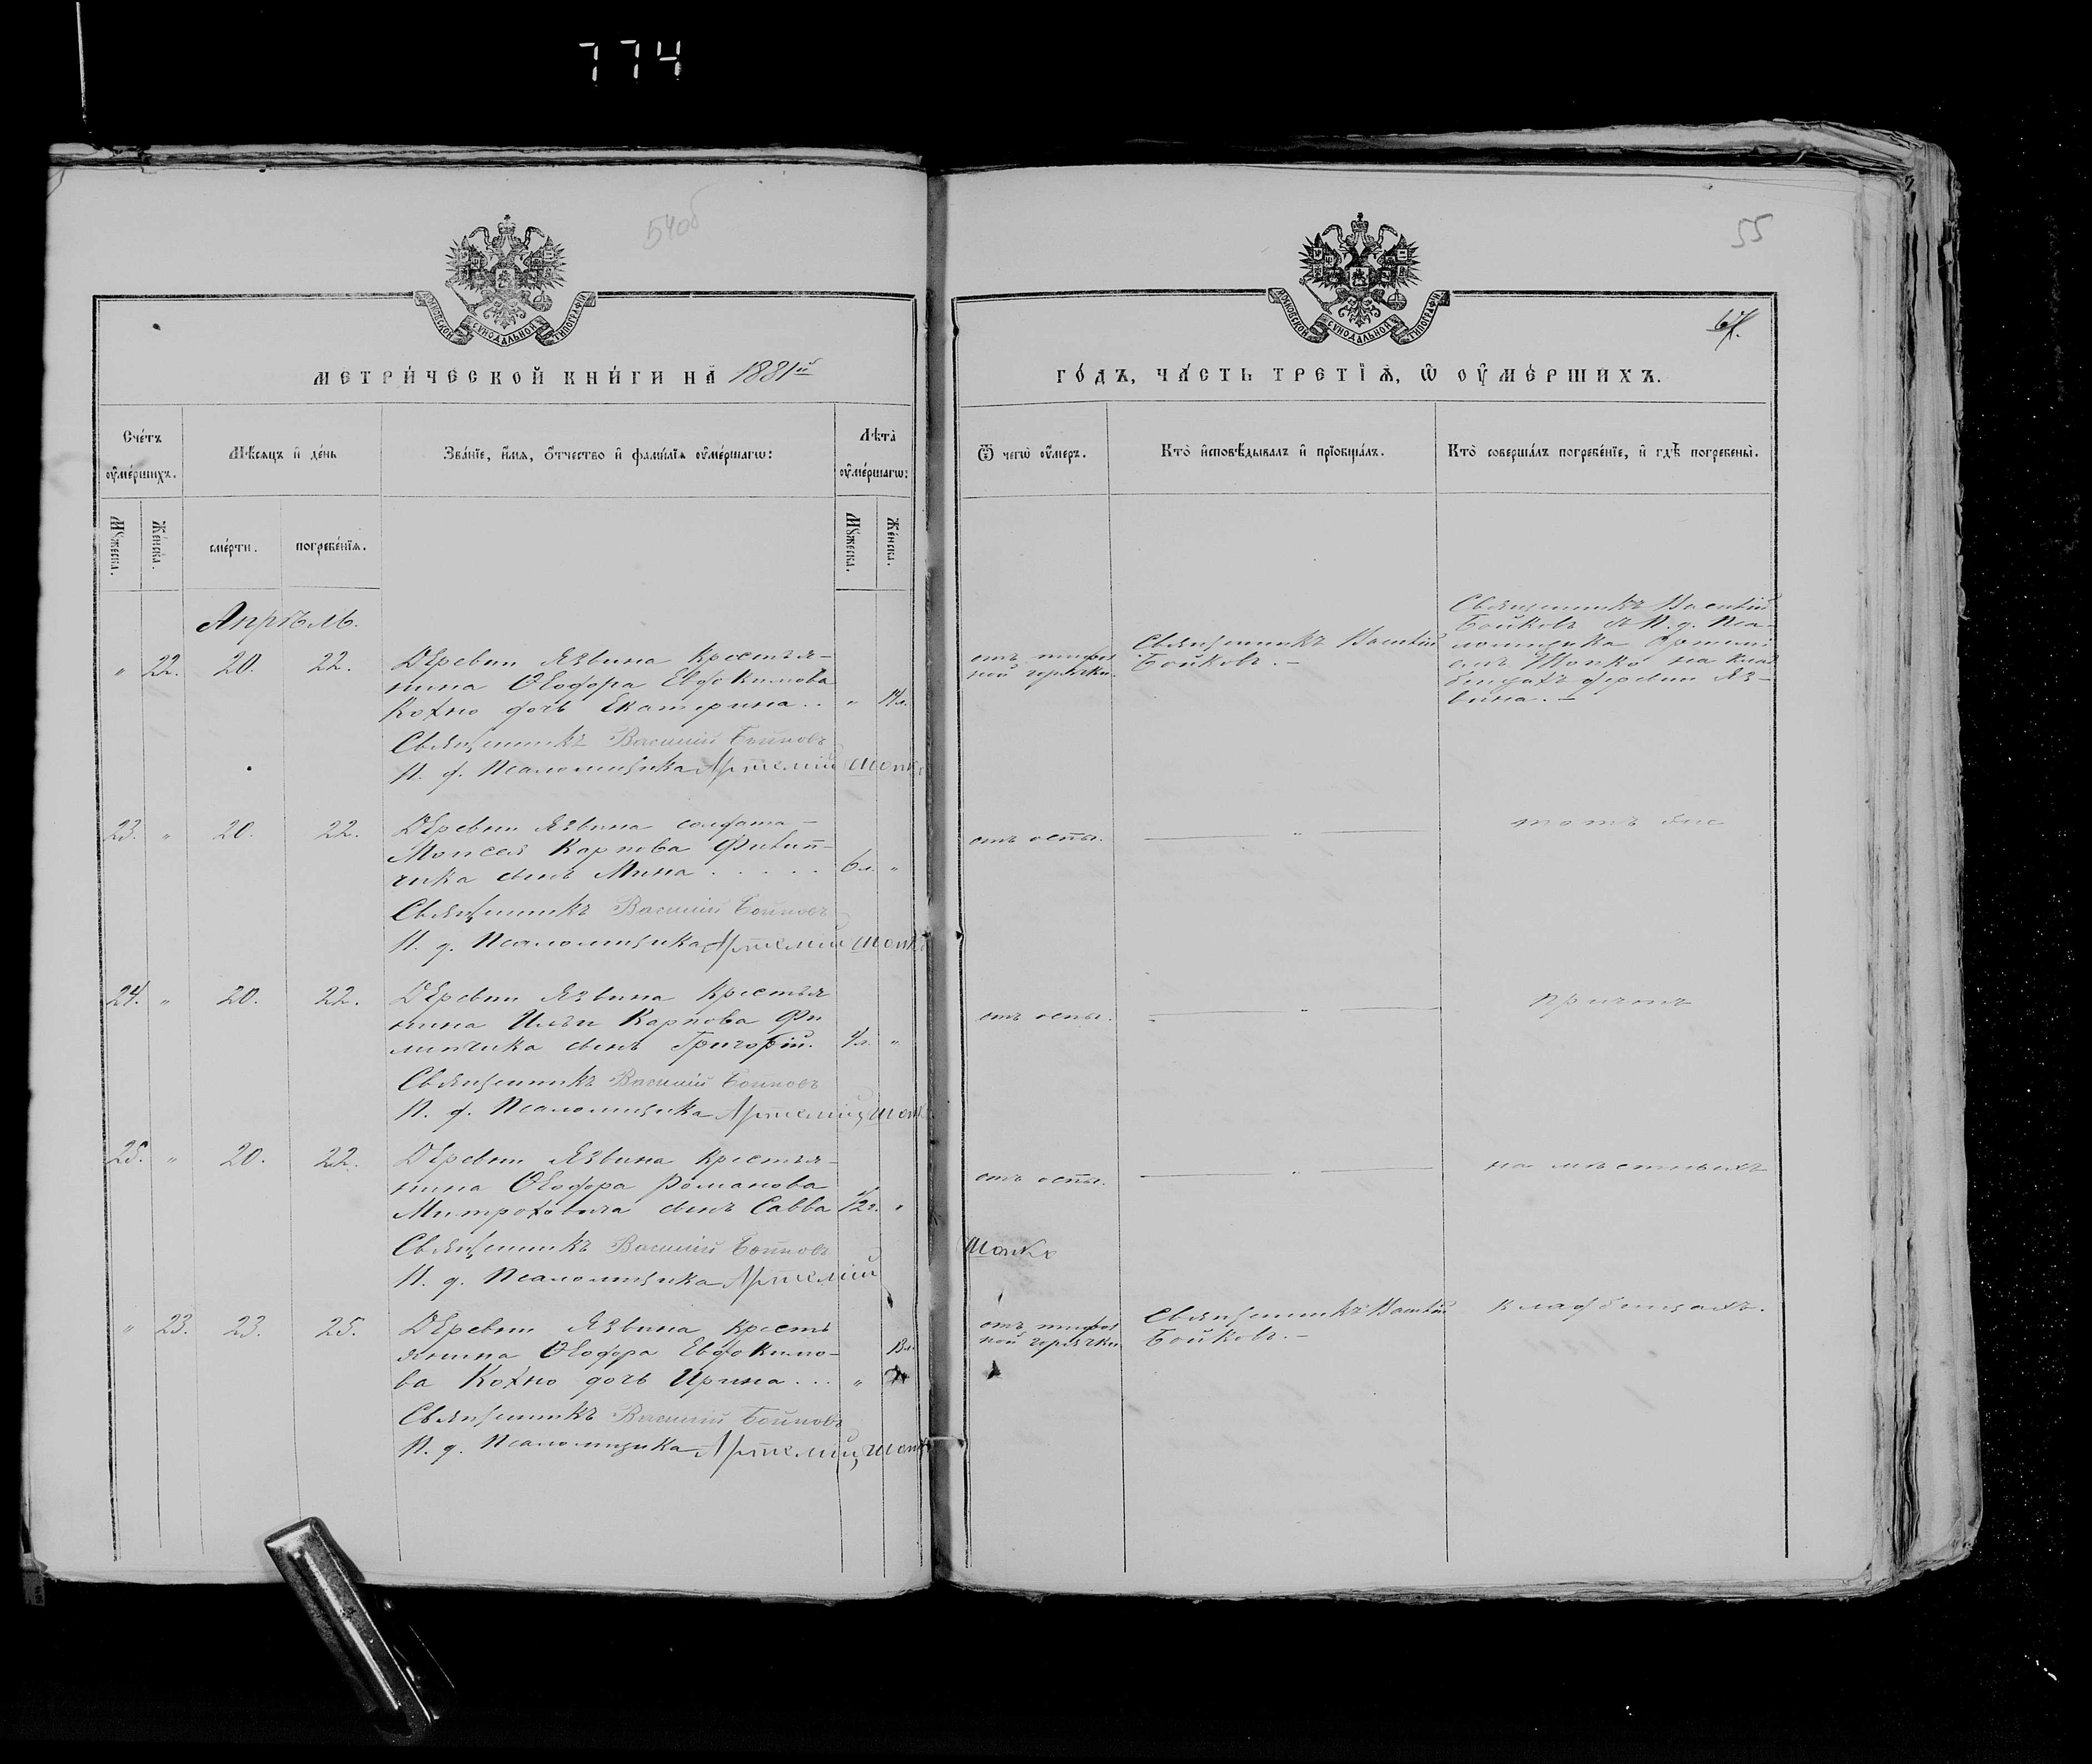 774
54об
55
67.
МОСКОВСКОЙ СѴНОДАЛЬНОЙ ТИПОГРАФІИ
МОСКОВСКОЙ СѴНОДАЛЬНОЙ ТИПОГРАФІИ
МЕТРИ́ЧЕСКОЙ КНИ́ГИ НА̀ 1881й
ГО́ДЪ, ЧА́СТЬ ТРЕ́ТІѦ, Ѡ ОУ҆МЕ́РШИХЪ.
Сче́тъ оу҆ме́ршихъ.
Мѣ́сяцъ и҆ де́нь
Зва́нїе, и҆́мѧ, ѻ҆́тчество и҆ фами́лїѧ оу҆ме́ршагѡ:
Лѣ́та̀ оу҆ме́ршагѡ:
Ѿ чегѡ̀ оу҆́меръ.
Кто̀ и҆сповѣ́дывалъ и҆ прїѡбща́лъ.
Кто̀ соверша́лъ погребе́нїе, и҆ гдѣ̀ погребены̀.
Мꙋ́жеска.
Же́нска.
сме́рти.
погребе́нїѧ.
Мꙋ́жеска.
Же́нска.
Апрѣль.
" 22. 20. 22.
Деревни Язвина крестья-
нина Ѳеодора Евдокимова
Кохно дочь Екатерина.. "
Священникъ Василій Бойковъ
И. д. Псаломщика Артемій Шопко
отъ тифоз
ной горячки.
Священникъ Василій
Бойковъ.-
Священникъ Василій
Бойковъ и И. д. Пса-
ломщика Артемій
Шопко на клад
бищахъ деревни Яз-
вина.-
23. " 20. 22.
Деревни Язвина солдата-
Моисея Карпова Филип-
чика сынъ Мина ..... 6 л. "
Священникъ Василій Бойковъ
И. д. Псаломщика Артемій Шопко
отъ оспы.
"
тотъ же
24. " 20. 22.
Деревни Язвина крестья
нина Ильи Карпова Фи
липчика сынъ Григорій. 4 л. "
Священникъ Василій Бойковъ
И. д. Псаломщика Артемій Шопко
отъ оспы.
"
причтъ
25. " 20. 22.
Деревни Язвина крестья-
нина Ѳеодора Романова
Митроховича сынъ Савва 1/2 г. "
Священникъ Василій Бойковъ
И. д. Псаломщика Артемій
Шопко
отъ оспы.
"
на мѣстныхъ
" 23. 23. 25.
Деревни Язвина кресть
янина Ѳеодора Евдокимо-
ва Кохно дочь Ирина... "
Священникъ Василій Бойковъ
И. д. Псаломщика Артемій Шопко
отъ тифоз
ной горячки
Священникъ Василій
Бойковъ.-
кладбищахъ.